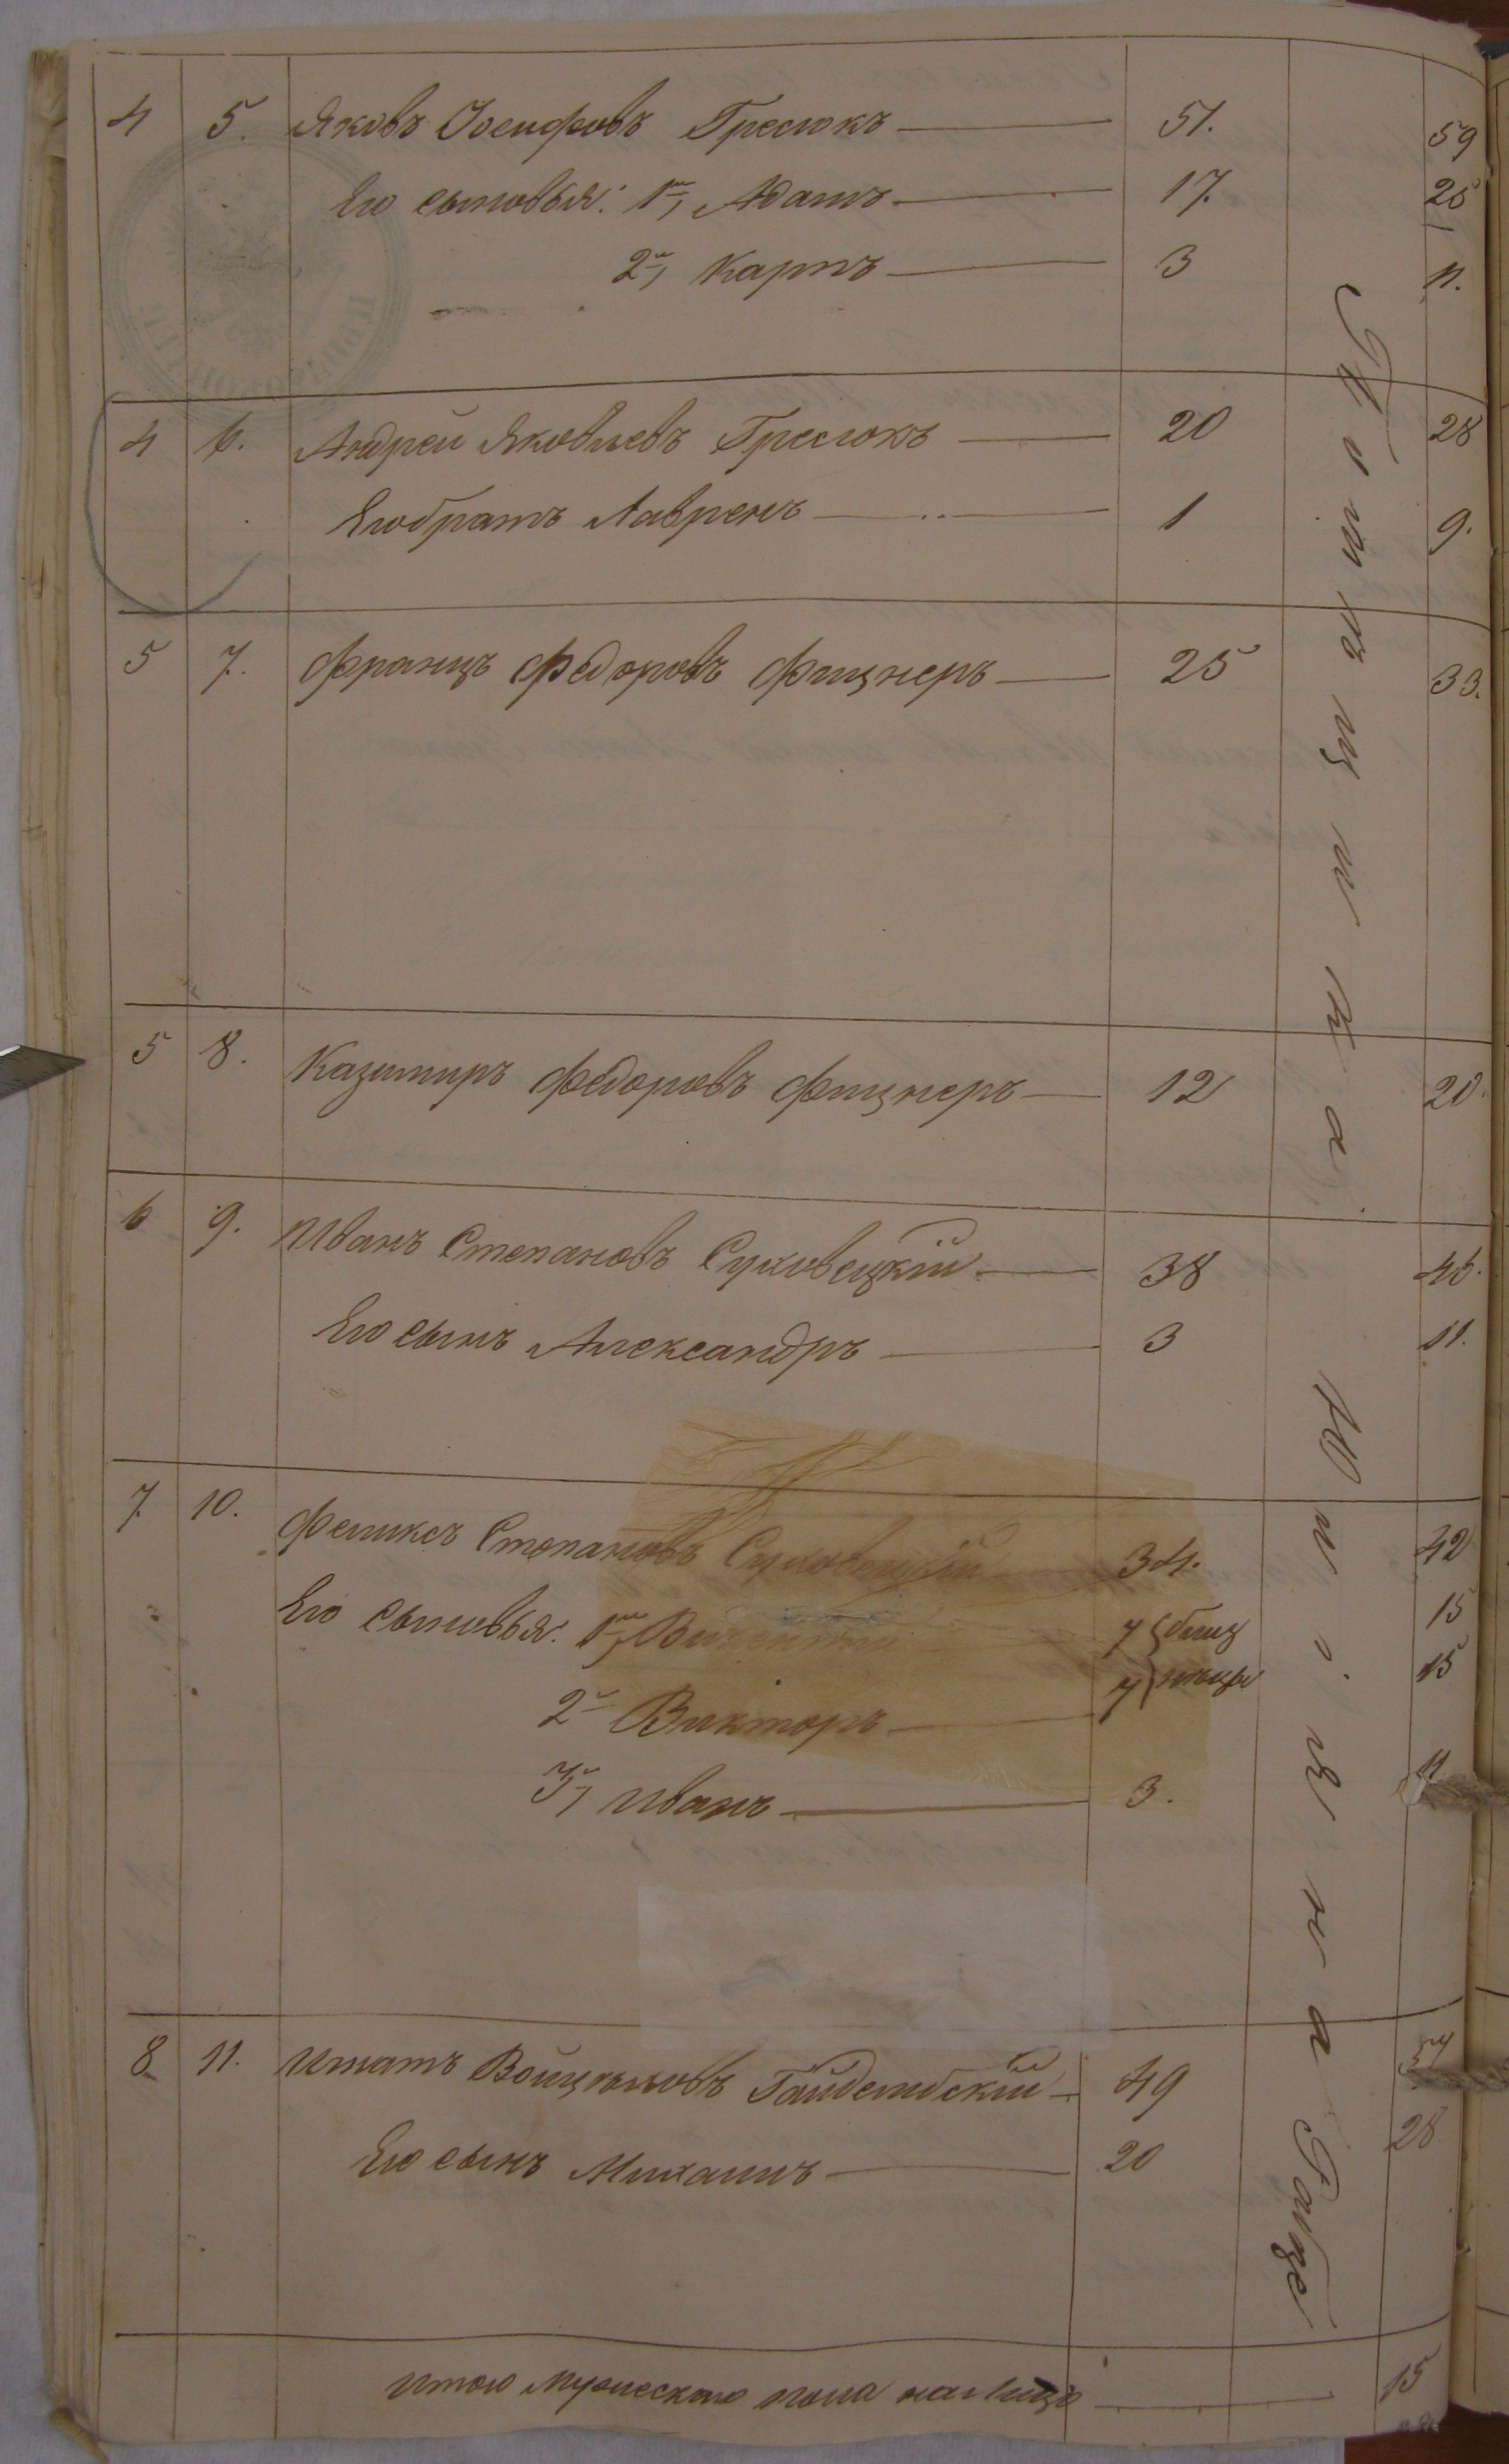 4 5. Яковъ Осиповъ Гресюкъ — 51. 59
Его сыновья: 1й, Адамъ — 17. 25
2й, Карпъ — 3 11.
4 6. Андрей Яковлевъ Гресюкъ — 20 28
Его братъ Лавренъ — 1 9.
5 7. Францъ Федоровъ Фицнеръ — 25 33.
5 8. Казимиръ Федоровъ Фицнеръ — 12 20.
6 9. Иванъ Степановъ Суховецкій — 38 46.
Его сынъ Александръ — 3 11.
7 10. Феликсъ Степановъ Суховецкій 34. 42
Его сыновья: 1й, Викентій 7 близ 15
2й Викторъ — 7 нецы 15
3й, Иванъ — 3. 11
8 11. Игнатъ Войцеховъ — 49 57
Его сынъ Михаилъ — 20 28
Итого мужескаго пола на лицо — 15